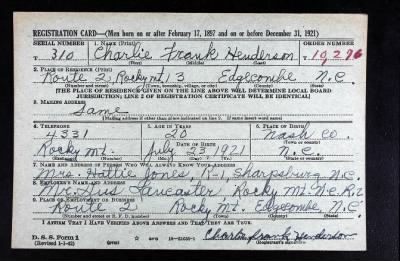 REGISTRATION CARD—(Men born on or after February 17, 1897 and on or before December 31, 1921)
SERIAL NUMBER 1. NAME (Print) ORDER NUMBER
T 310 Charlie Frank Henderson T10,296
(First) (Middle) (Last)
2. PLACE OF RESIDENCE (Print)
Route 2, Rocky mt, 3 Edgecombe N.C.
(Number and street) (Town, township, village, or city) (County) (State)
[THE PLACE OF RESIDENCE GIVEN ON THE LINE ABOVE WILL DETERMINE LOCAL BOARD
JURISDICTION; LINE 2 OF REGISTRATION CERTIFICATE WILL BE IDENTICAL]
3. MAILING ADDRESS
Same
[Mailing address if other than place indicated on line 2. If same insert word same]
4. TELEPHONE 5. AGE IN YEARS 6. PLACE OF BIRTH
4331 20 Nash co.
DATE OF BIRTH (Town or county)
Rocky Mt. July 23 1921 N.C.
(Exchange) (Number) (Mo.) (Day) (Yr.) (State or country)
7. NAME AND ADDRESS OF PERSON WHO WILL ALWAYS KNOW YOUR ADDRESS
Mrs. Hattie Jones, R-1, Sharpsburg, N.C.
8. EMPLOYER'S NAME AND ADDRESS
Mr. Gus Lancaster Rocky Mt. N.C. R.2
9. PLACE OF EMPLOYMENT OR BUSINESS
Route 2 Rocky Mt. Edgecombe, N.C.
(Number and street or R. F. D. number) (Town) (County) (State)
I AFFIRM THAT I HAVE VERIFIED ABOVE ANSWERS AND THAT THEY ARE TRUE.
D. S. S. Form 1
(Revised 1-1-42) (over) Charlie frank Henderson
(Registrant's signature)